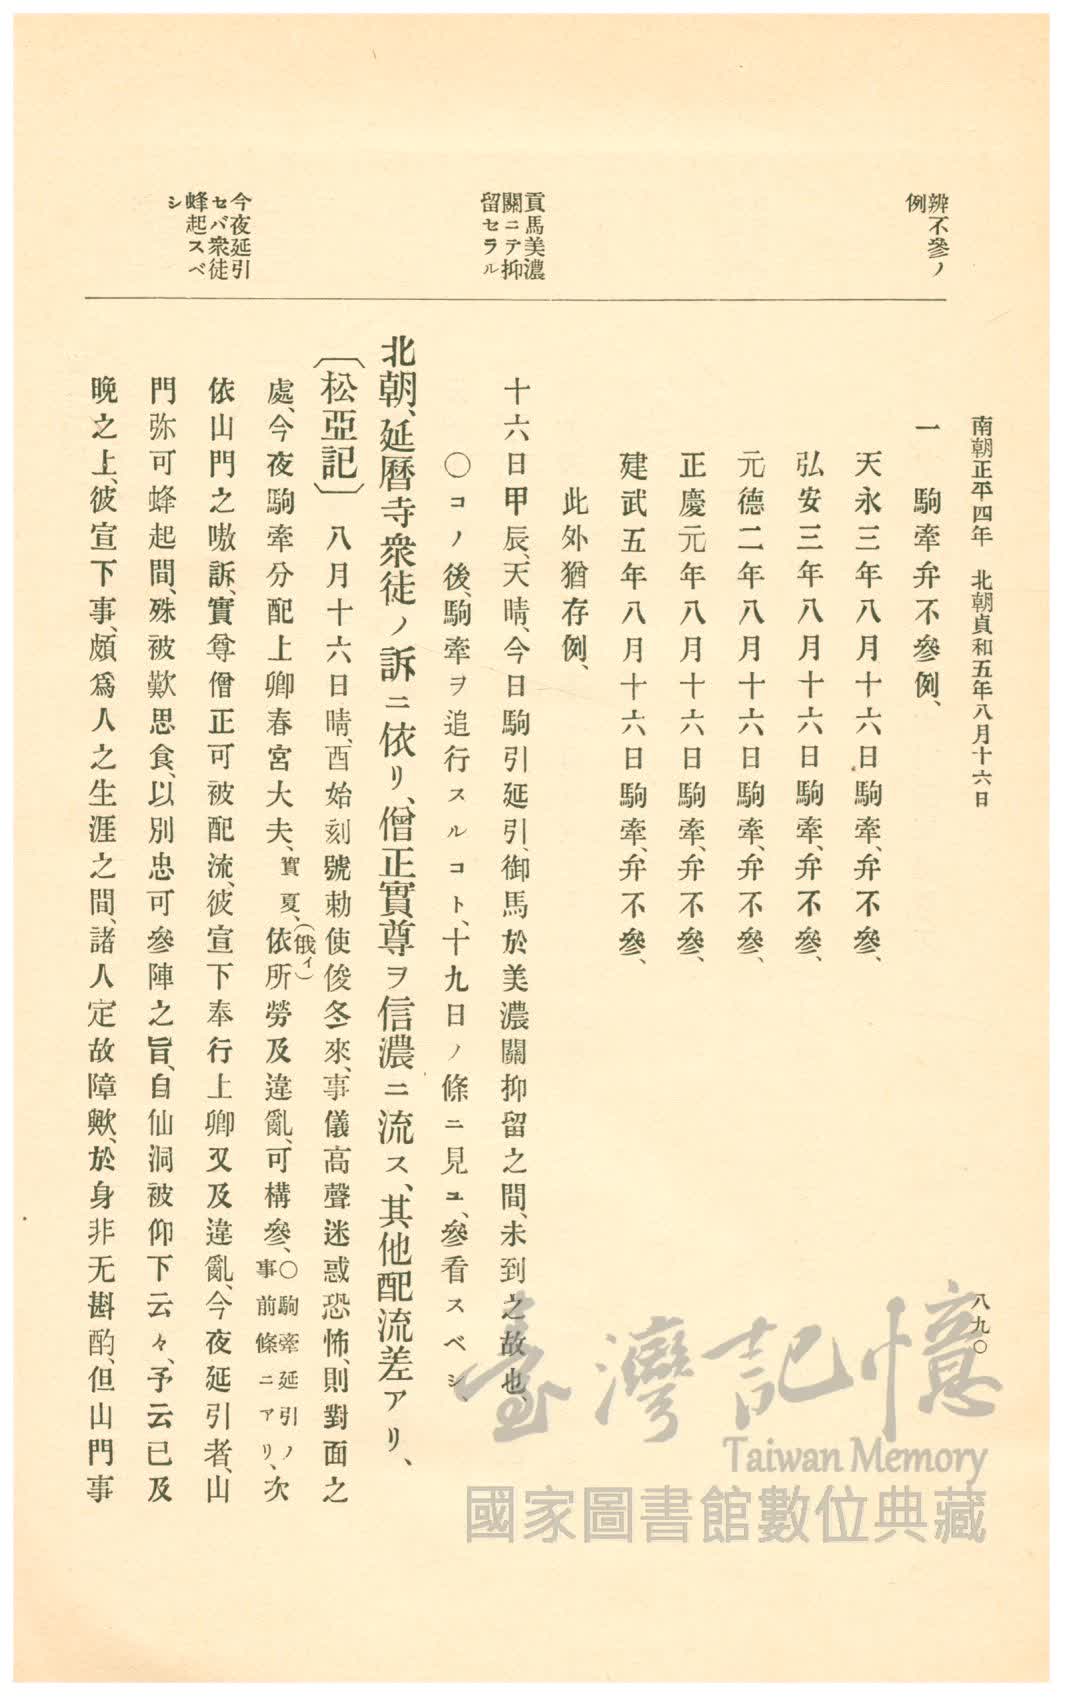 南朝正平四年　北朝貞和五年八月十六日
八九〇
辨不參ノ
例
貢馬美濃
關ニテ抑
留セラル
今夜延引
セバ衆徒
蜂起スベ
シ
一　駒牽弁不參例、
天永三年八月十六日駒牽、弁不參、
弘安三年八月十六日駒牽、弁不參、
元德二年八月十六日駒牽、弁不參、
正慶元年八月十六日駒牽、弁不參、
建武五年八月十六日駒牽、弁不參、
此外猶存例、
十六日甲辰、天晴、今日駒引延引、御馬於美濃關抑留之間、未到之故也、
〇コノ後、駒牽ヲ追行スルコト、十九日ノ條ニ見ユ、參看スベシ、
北朝、延曆寺衆徒ノ訴ニ依リ、僧正實尊ヲ信濃ニ流ス、其他配流差アリ、
〔松亞記〕八月十六日晴、酉始刻號勅使俊冬來、事儀高聲迷惑恐怖、則對面之
處、今夜駒牽分配上卿春宮大夫、實夏、依(俄イ)所勞及違亂、可構參、〇駒牽延引ノ事前條ニアリ、次
依山門之嗷訴、實尊僧正可被配流、彼宣下奉行上卿又及違亂、今夜延引者、山
門弥可蜂起間、殊被歎思食、以別忠可參陣之旨、自仙洞被仰下云々、予云已及
晩之上、彼宣下事、頗爲人之生涯之間、諸人定故障歟、於身非无斟酌、但山門事
臺灣記憶
Taiwan Memory
國家圖書館數位典藏